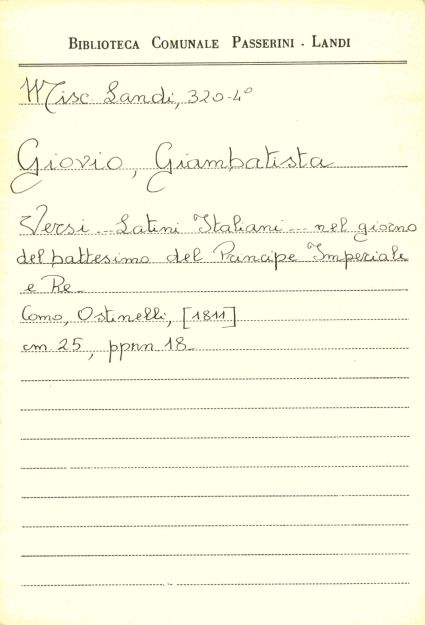 BIBLIOTECA COMUNALE PASSERINI - LANDI
Misc Landi, 320-4°
Giovio, Giambatista
Versi ... Latini Italiani ... nel giorno
del battesimo del Principe Imperiale
e Re -
Como, Ostinelli, [1811]
cm. 25, ppnn 18.